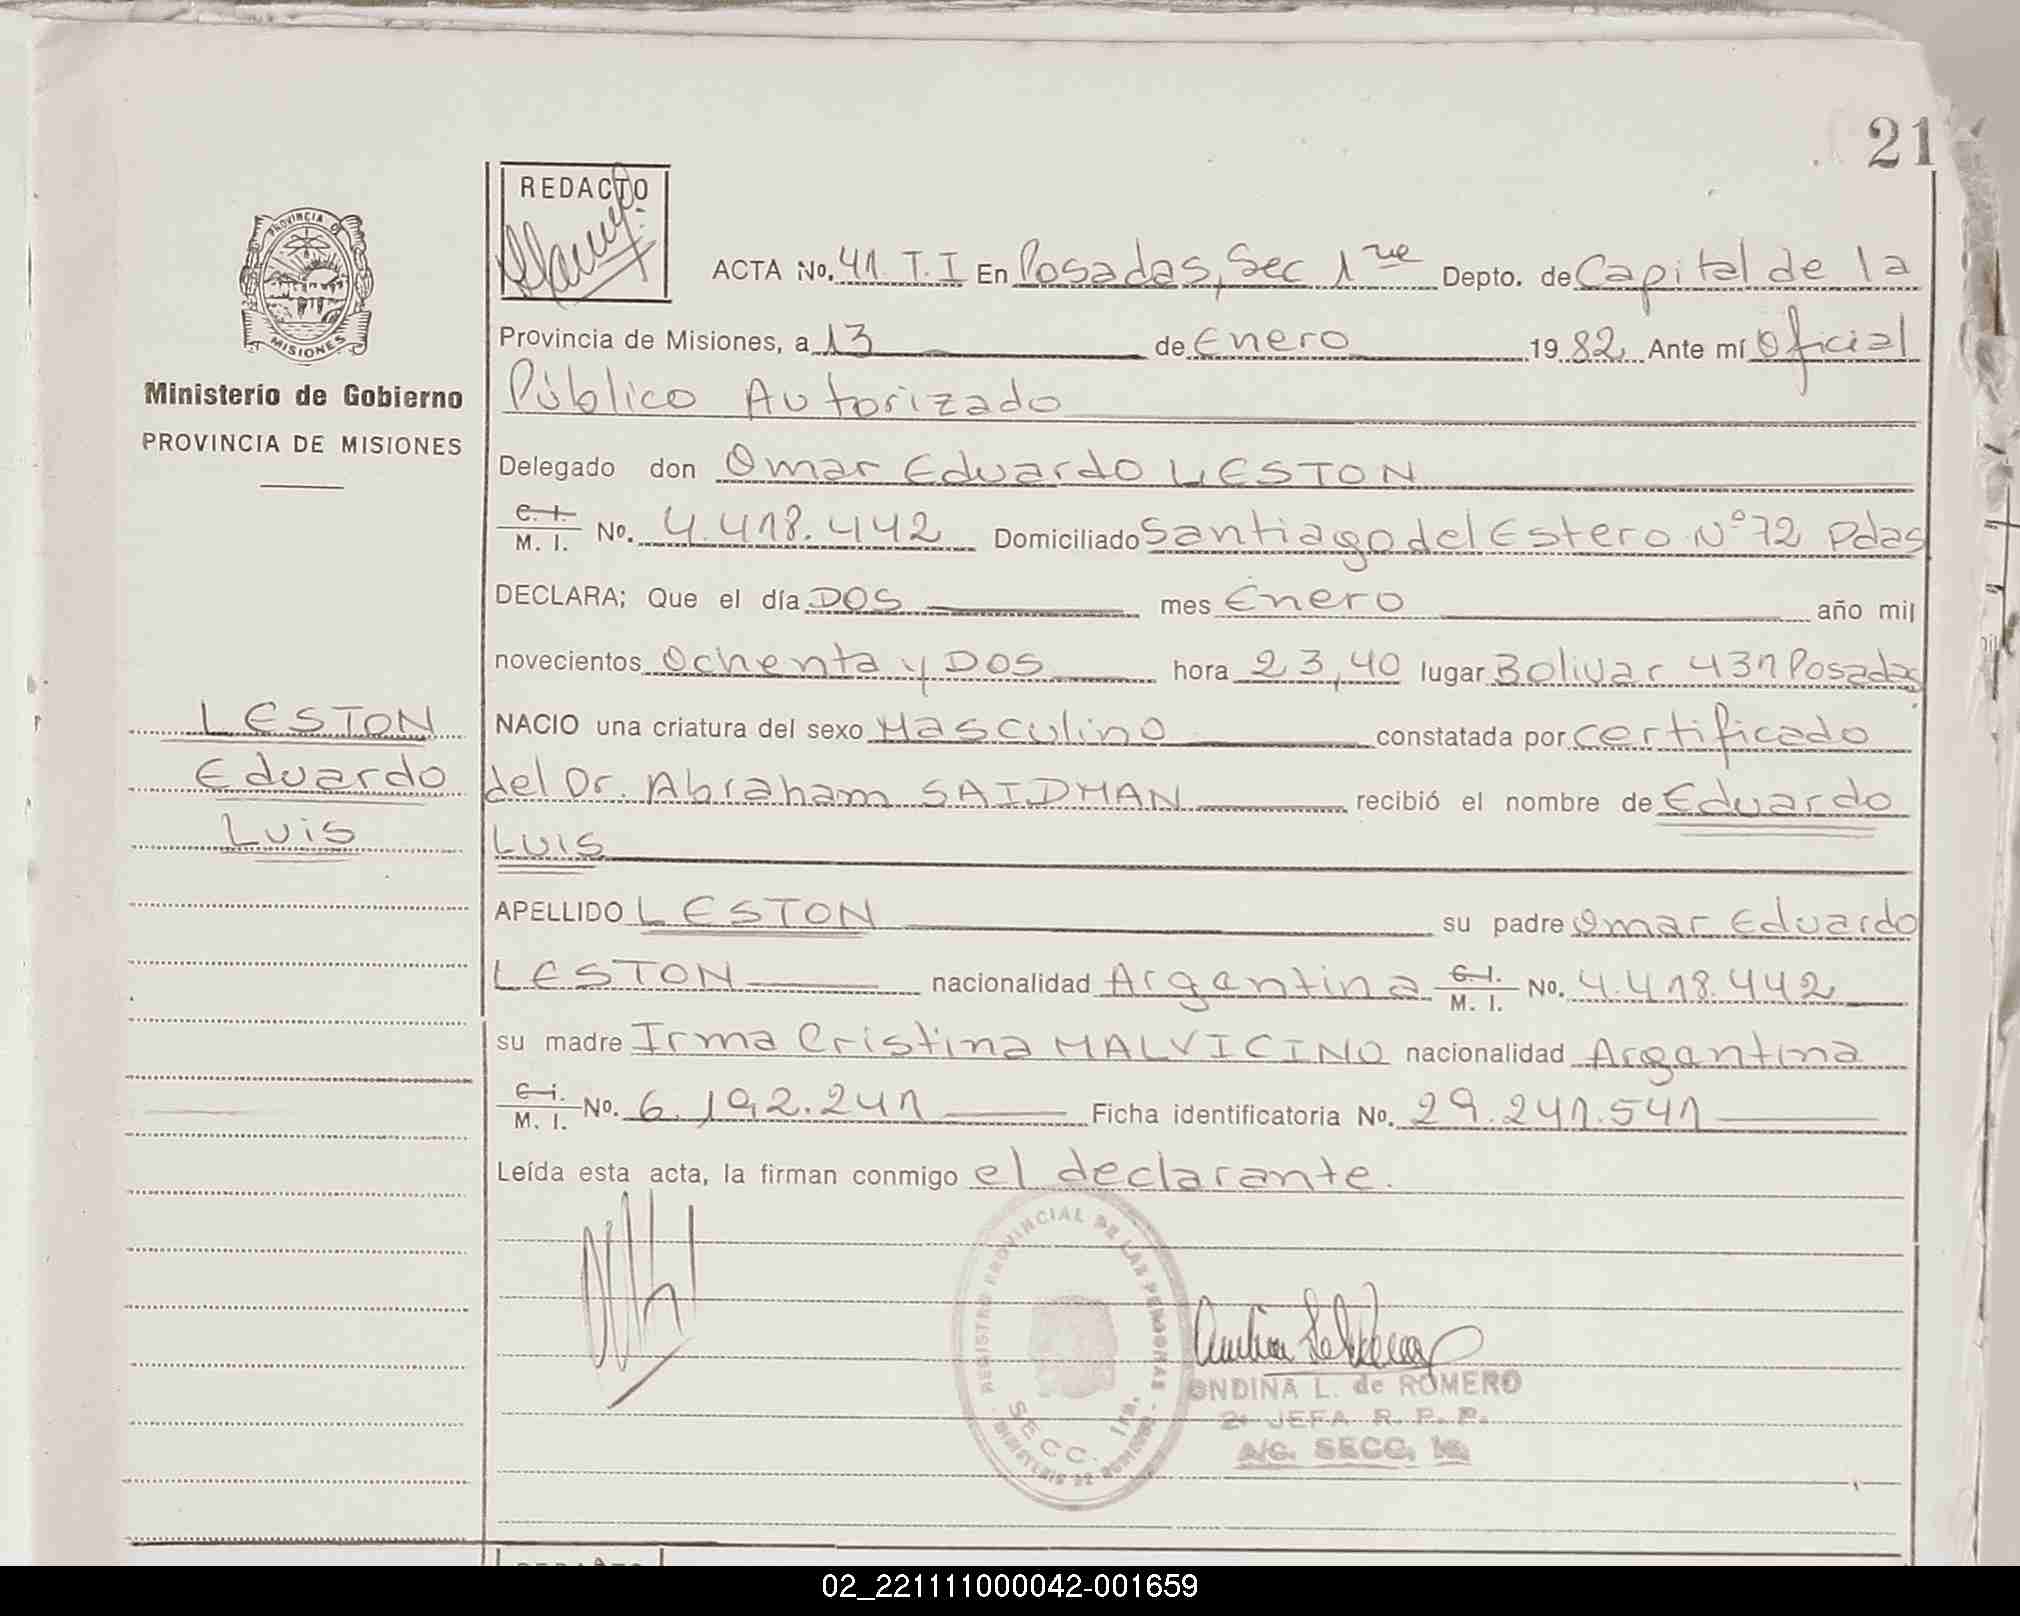 21
PROVINCIA DE
MISIONES
Ministerio de Gobierno
PROVINCIA DE MISIONES
REDACTO
ACTA No. 41. T. I En Posadas, Sec 1ra Depto. de Capital de la
Provincia de Misiones, a 13 de Enero 1982 Ante mí Oficial
Público Autorizado
Delegado don Omar Eduardo LESTON
C. I.
M. I. No. 4.418.442 Domiciliado Santiago del Estero Nº 72 Pdas
DECLARA; Que el día DOS mes Enero año mil
novecientos ochenta y DOS hora 23,40 lugar Bolivar 431 Posadas
NACIO una criatura del sexo Masculino constatada por certificado
del Dr. Abraham SAIDMAN recibió el nombre de Eduardo
LUIS
APELLIDO LESTON su padre Omar Eduardo
LESTON nacionalidad Argentina C. I. M. I. No. 4.418.442
su madre Irma Cristina MALVICINO nacionalidad Argentina
C. I.
M. I. No. 6.192.241 Ficha identificatoria No. 29.241.541
Leída esta acta, la firman conmigo el declarante.
LESTON
Eduardo
Luis
REGISTRO PROVINCIAL DE LAS PERSONAS
SECC. 1ra.
ONDINA L. de ROMERO
2º JEFA R. P. P.
A/C. SECC. 1a.
REDACTO
02_221111000042-001659